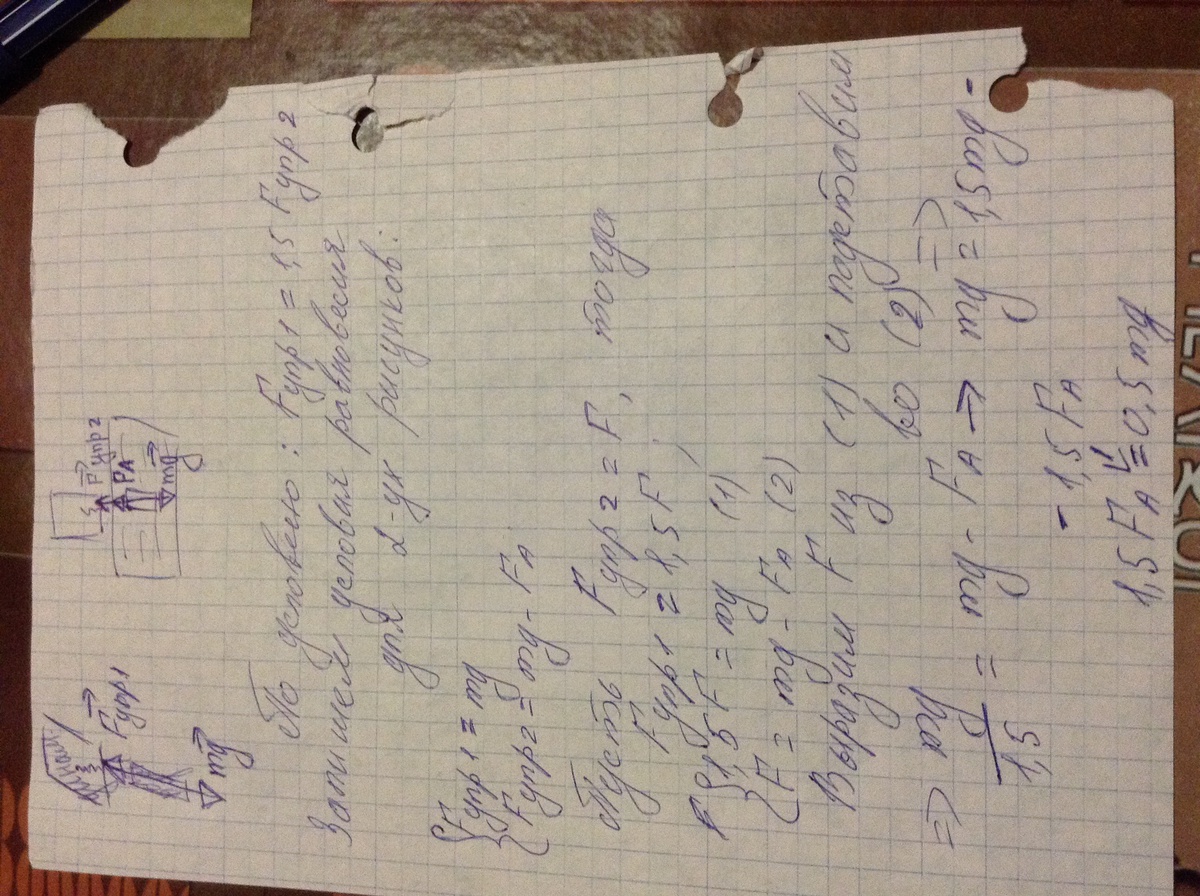 Fупр1
mg
Fупр2
FA
mg
По условию: Fупр1 = 1,5 Fупр2
Запишем условия равновесия
для 2-ух рисунков:
{Fупр1 = mg
{Fупр2 = mg - FA
Пусть Fупр2 = F, тогда
Fупр1 = 1,5F;
{1,5F = mg (1)
{F = mg - FA (2)
Выразим F из (1) и подставим
во (2) =>
=> mg/1,5 = mg - FA → mg = 1,5mg -
- 1,5 FA
1,5 FA = 0,5 mg